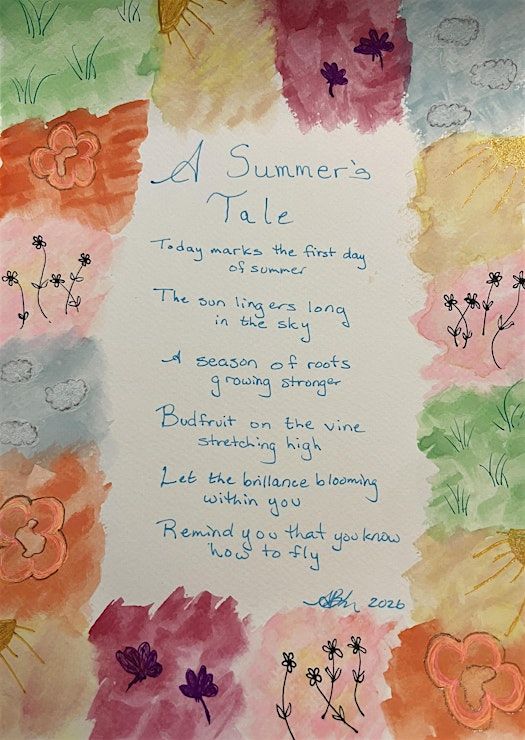 A Summer's
Tale
Today marks the first day
of summer
The sun lingers long
in the sky
A season of roots
growing stronger
Budfruit on the vine
stretching high
Let the brillance blooming
within you
Remind you that you know
how to fly
2026